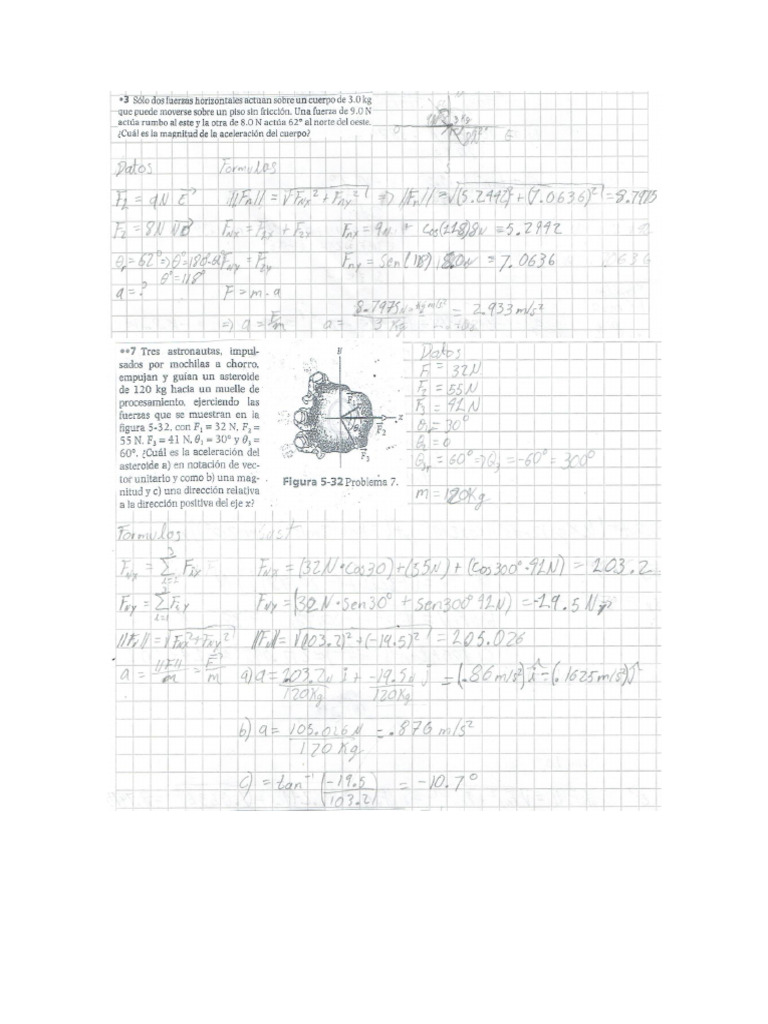 •3 Sólo dos fuerzas horizontales actúan sobre un cuerpo de 3.0 kg
que puede moverse sobre un piso sin fricción. Una fuerza de 9.0 N
actúa rumbo al este y la otra de 8.0 N actúa 62° al norte del oeste.
¿Cuál es la magnitud de la aceleración del cuerpo?
Datos Formulas
F₁ = 9N E ||Fn|| = √Fnx² + Fny² ⇒ ||Fn|| = √(5.2442)² + (7.0636)² = 8.7975
F₂ = 8N Fnx = F1x + F2x Fnx = 9N + Cos(118)8N = 5.2442
θ = 62° ⇒ θ = 180-62° Fny = F2y Fny = Sen(118) 8.0N = 7.0636
θ = 118°
a = ? F = m·a
⇒ a = F/m a = 8.7975N/3 Kg = 2.933 m/s²
••7 Tres astronautas, impul-
sados por mochilas a chorro,
empujan y guían un asteroide
de 120 kg hacia un muelle de
procesamiento, ejerciendo las
fuerzas que se muestran en la
figura 5-32, con F₁ = 32 N, F₂ =
55 N, F₃ = 41 N, θ₁ = 30° y θ₃ =
60°. ¿Cuál es la aceleración del
asteroide a) en notación de vec-
tor unitario y como b) una mag-
nitud y c) una dirección relativa
a la dirección positiva del eje x?
y
x
F₁
F₂
F₃
Figura 5-32 Problema 7.
Datos
F = 32N
F₂ = 55N
F₃ = 41N
θ₁ = 30°
θ₂ = 0
θ₃ = 60° ⇒ θ₃ = -60° = 300°
m = 120Kg
Formulas
Fnx = Σ Fix Fnx = (32N·Cos30) + (55N) + (Cos300°·41N) = 103.2
Fny = Σ Fiy Fny = (32N·Sen30° + Sen300° 41N) = -19.5N
||Fn|| = √Fnx² + Fny² ||Fn|| = √(103.2)² + (-19.5)² = 105.026
a = ||F||/m = F/m a) a = 103.2N/120Kg i + -19.5N/120Kg j = (.86 m/s²)i - (.1625 m/s²)j
b) a = 105.026 N/120 Kg = .876 m/s²
c) = tan⁻¹(-19.5/103.2) = -10.7°